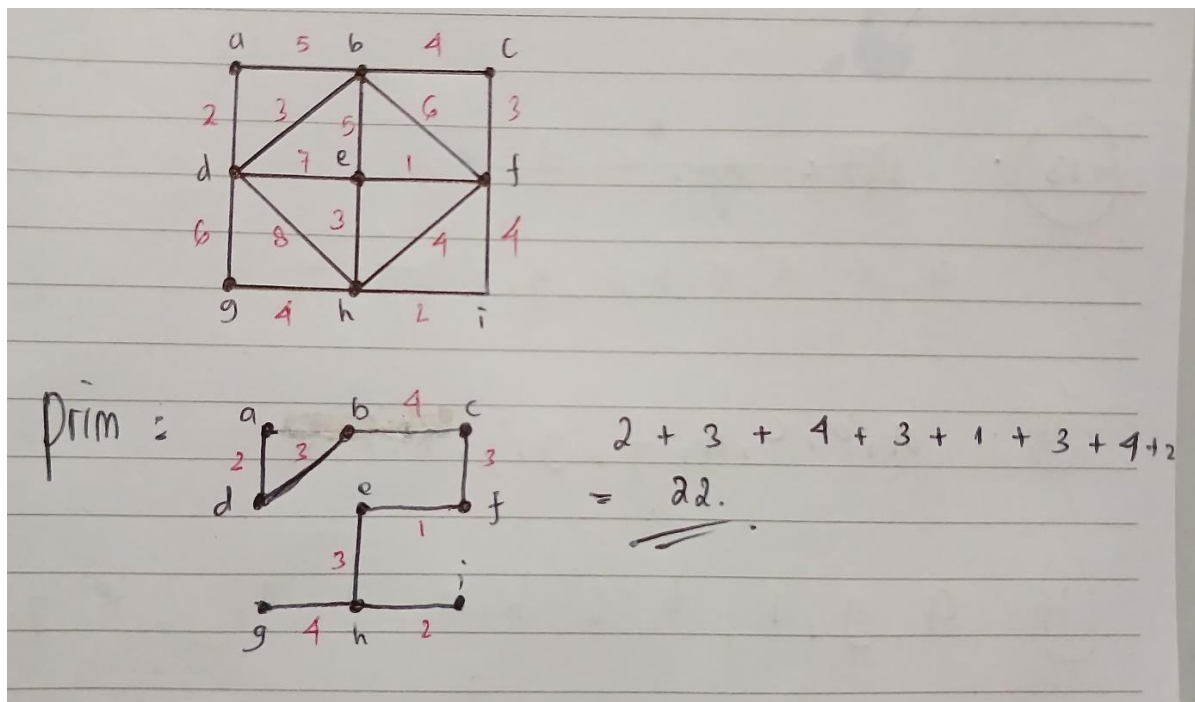 a 5 b 4 c
2 3 5 6 3
d 7 e 1 f
6 8 3 4 4
g 4 h 2 i
Prim :
a b 4 c
2 3 3
d e f
1
3
i
g 4 h 2
2 + 3 + 4 + 3 + 1 + 3 + 4 + 2
= 22.